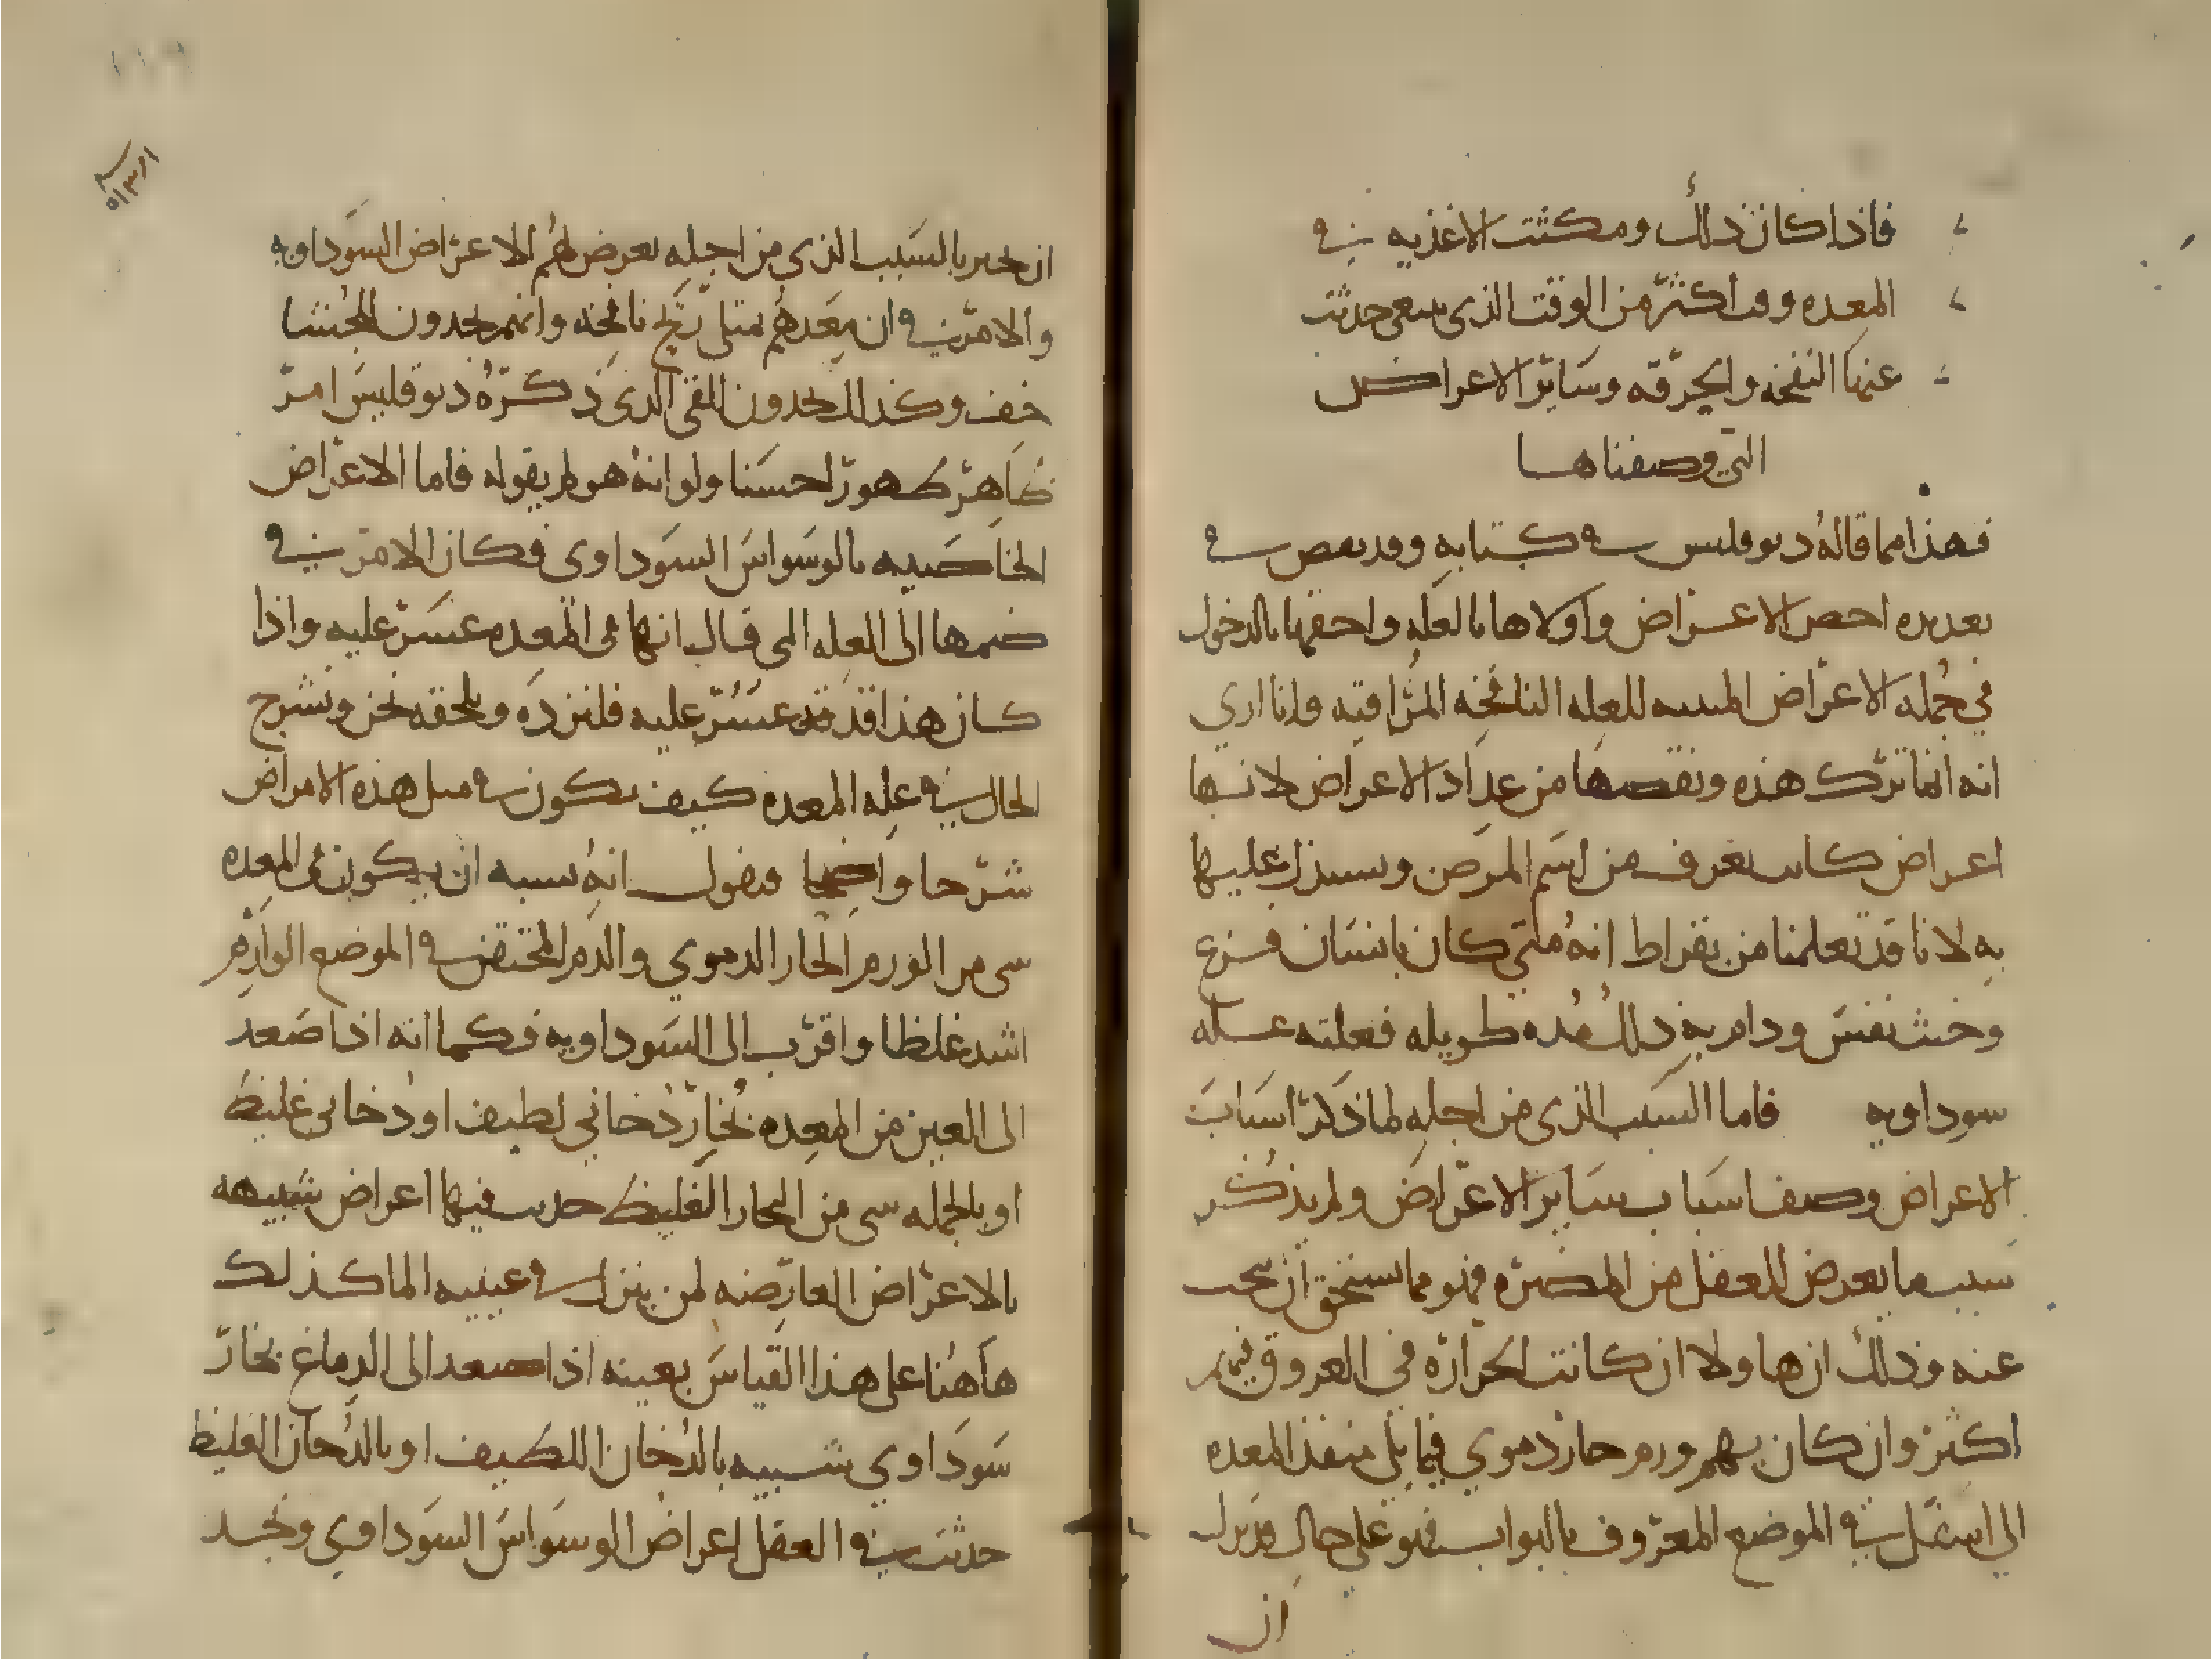 فاذا كان ذلك ومكثت الاغذيه في
المعده وقتا اكثر من الوقت الذي ينبغي حدثت
عنها النفخه والحرقه وسائر الاعراض
التي وصفناها
فهذا مما قاله ديوقليس في كتابه وقد نقص في
تعديده اخص الاعراض واولاها بالعله واحقها بالدخول
في جمله الاعراض المبينه للعله النافخه المراقيه وانا اري
انه انما ترك هذه ونقصها من عداد الاعراض لانها
اعراض كانت تعرف من اسم المرض ويستدل عليها
به لانا قد تعلمنا من بقراط انه متي كان بانسان فزع
وخبث نفس ودام به ذلك مده طويله فعلته عله
سوداويه فاما السبب الذي من اجله لما ذكر اسباب
الاعراض وصف اسباب سائر الاعراض ولم يذكر
سبب ما يعرض للعقل من المضره فهو مما يستحق ان يبحث
عنه وذلك ان هاولا ان كانت الحراره في العروق فيهم
اكثر وان كان بهم ورم حار دموي فيما يلي منفذ المعده
الي اسفل في الموضع المعروف بالبواب فهو علي حال
ان
١١٩
ان يخبر بالسبب الذي من اجله تعرض لهم الاعراض السوداويه
والامر في ان معدهم تمتلي ريح نافخه وانهم يجدون للجشا
خف وكذلك يجدون للقي الذي ذكره ديوقليس امر
ظاهر ظهورا حسنا ولو انه هو لم يقوله فاما الاعراض
الخاصيه بالوسواس السوداوي فكان الامر في
ضمها الى العله التي قال انها في المعده عسر عليه واذا
كان هذا قد قد عسر عليه فلنزده ونلحقه نحن ونشرح
الحال في عله المعده كيف تكون في مثل هذه الامراض
شرحا واضحا فنقول انه يشبه ان يكون في المعده
شي من الورم الحار الدموي والدم المحتقن في الموضع الوارم
اشد غلظا واقرب الى السوداويه فكما انه اذا صعد
الى العين من المعده بخار دخاني لطيف او دخاني غليظ
او بالجمله شي من البخار الغليظ حدث فيها اعراض شبيهه
بالاعراض العارضه لمن ينزل في عينيه الما كذلك
هاهنا على هذا القياس بعينه اذا صعد الى الدماغ بخار
سوداوي شبيه بالدخان اللطيف او بالدخان الغليظ
حدثت في العقل اعراض الوسواس السوداوي ونجد